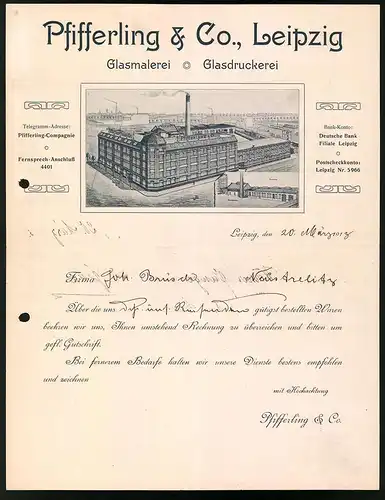 Pfifferling & Co., Leipzig
Glasmalerei Glasdruckerei
Telegramm-Adresse:
Pfifferling-Compagnie
Fernsprech-Anschluß
4401
Bank-Konto:
Deutsche Bank
Filiale Leipzig
Postscheckkonto:
Leipzig Nr. 5966
Leipzig, den 20. März
Firma Joh. Neustrelitz
Über die uns Reisenden gütigst bestellten Waren
beehren wir uns, Ihnen umstehend Rechnung zu überreichen und bitten um
gefl. Gutschrift.
Bei fernerem Bedarfe halten wir unsere Dienste bestens empfohlen
und zeichnen
mit Hochachtung
Pfifferling & Co.